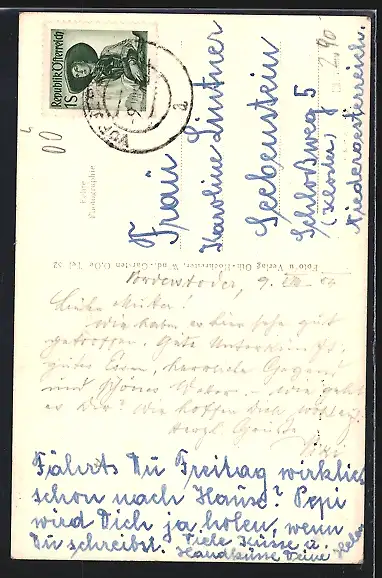 Republik Österreich
1 S
2,90
Echte
Photographie
Frau
Karoline Lintner
Seebenstein
Schloßweg 5
(Kloster)
Niederoesterreich.
Foto u Verlag
Vorderstoder, 9.
Liebe Mutter!
Wir haben es hier sehr gut
getroffen. Gute Unterkunft,
gutes Essen, herrliche Gegend
und schönes Wetter. - Wie geht
es Dir? Wir hoffen Dich
Herzl. Grüße
Fährst Du Freitag wirklich
schon nach Hause? Pepi
wird Dich ja holen, wenn
Du schreibst. Viele Küsse u.
Handküsse Deine